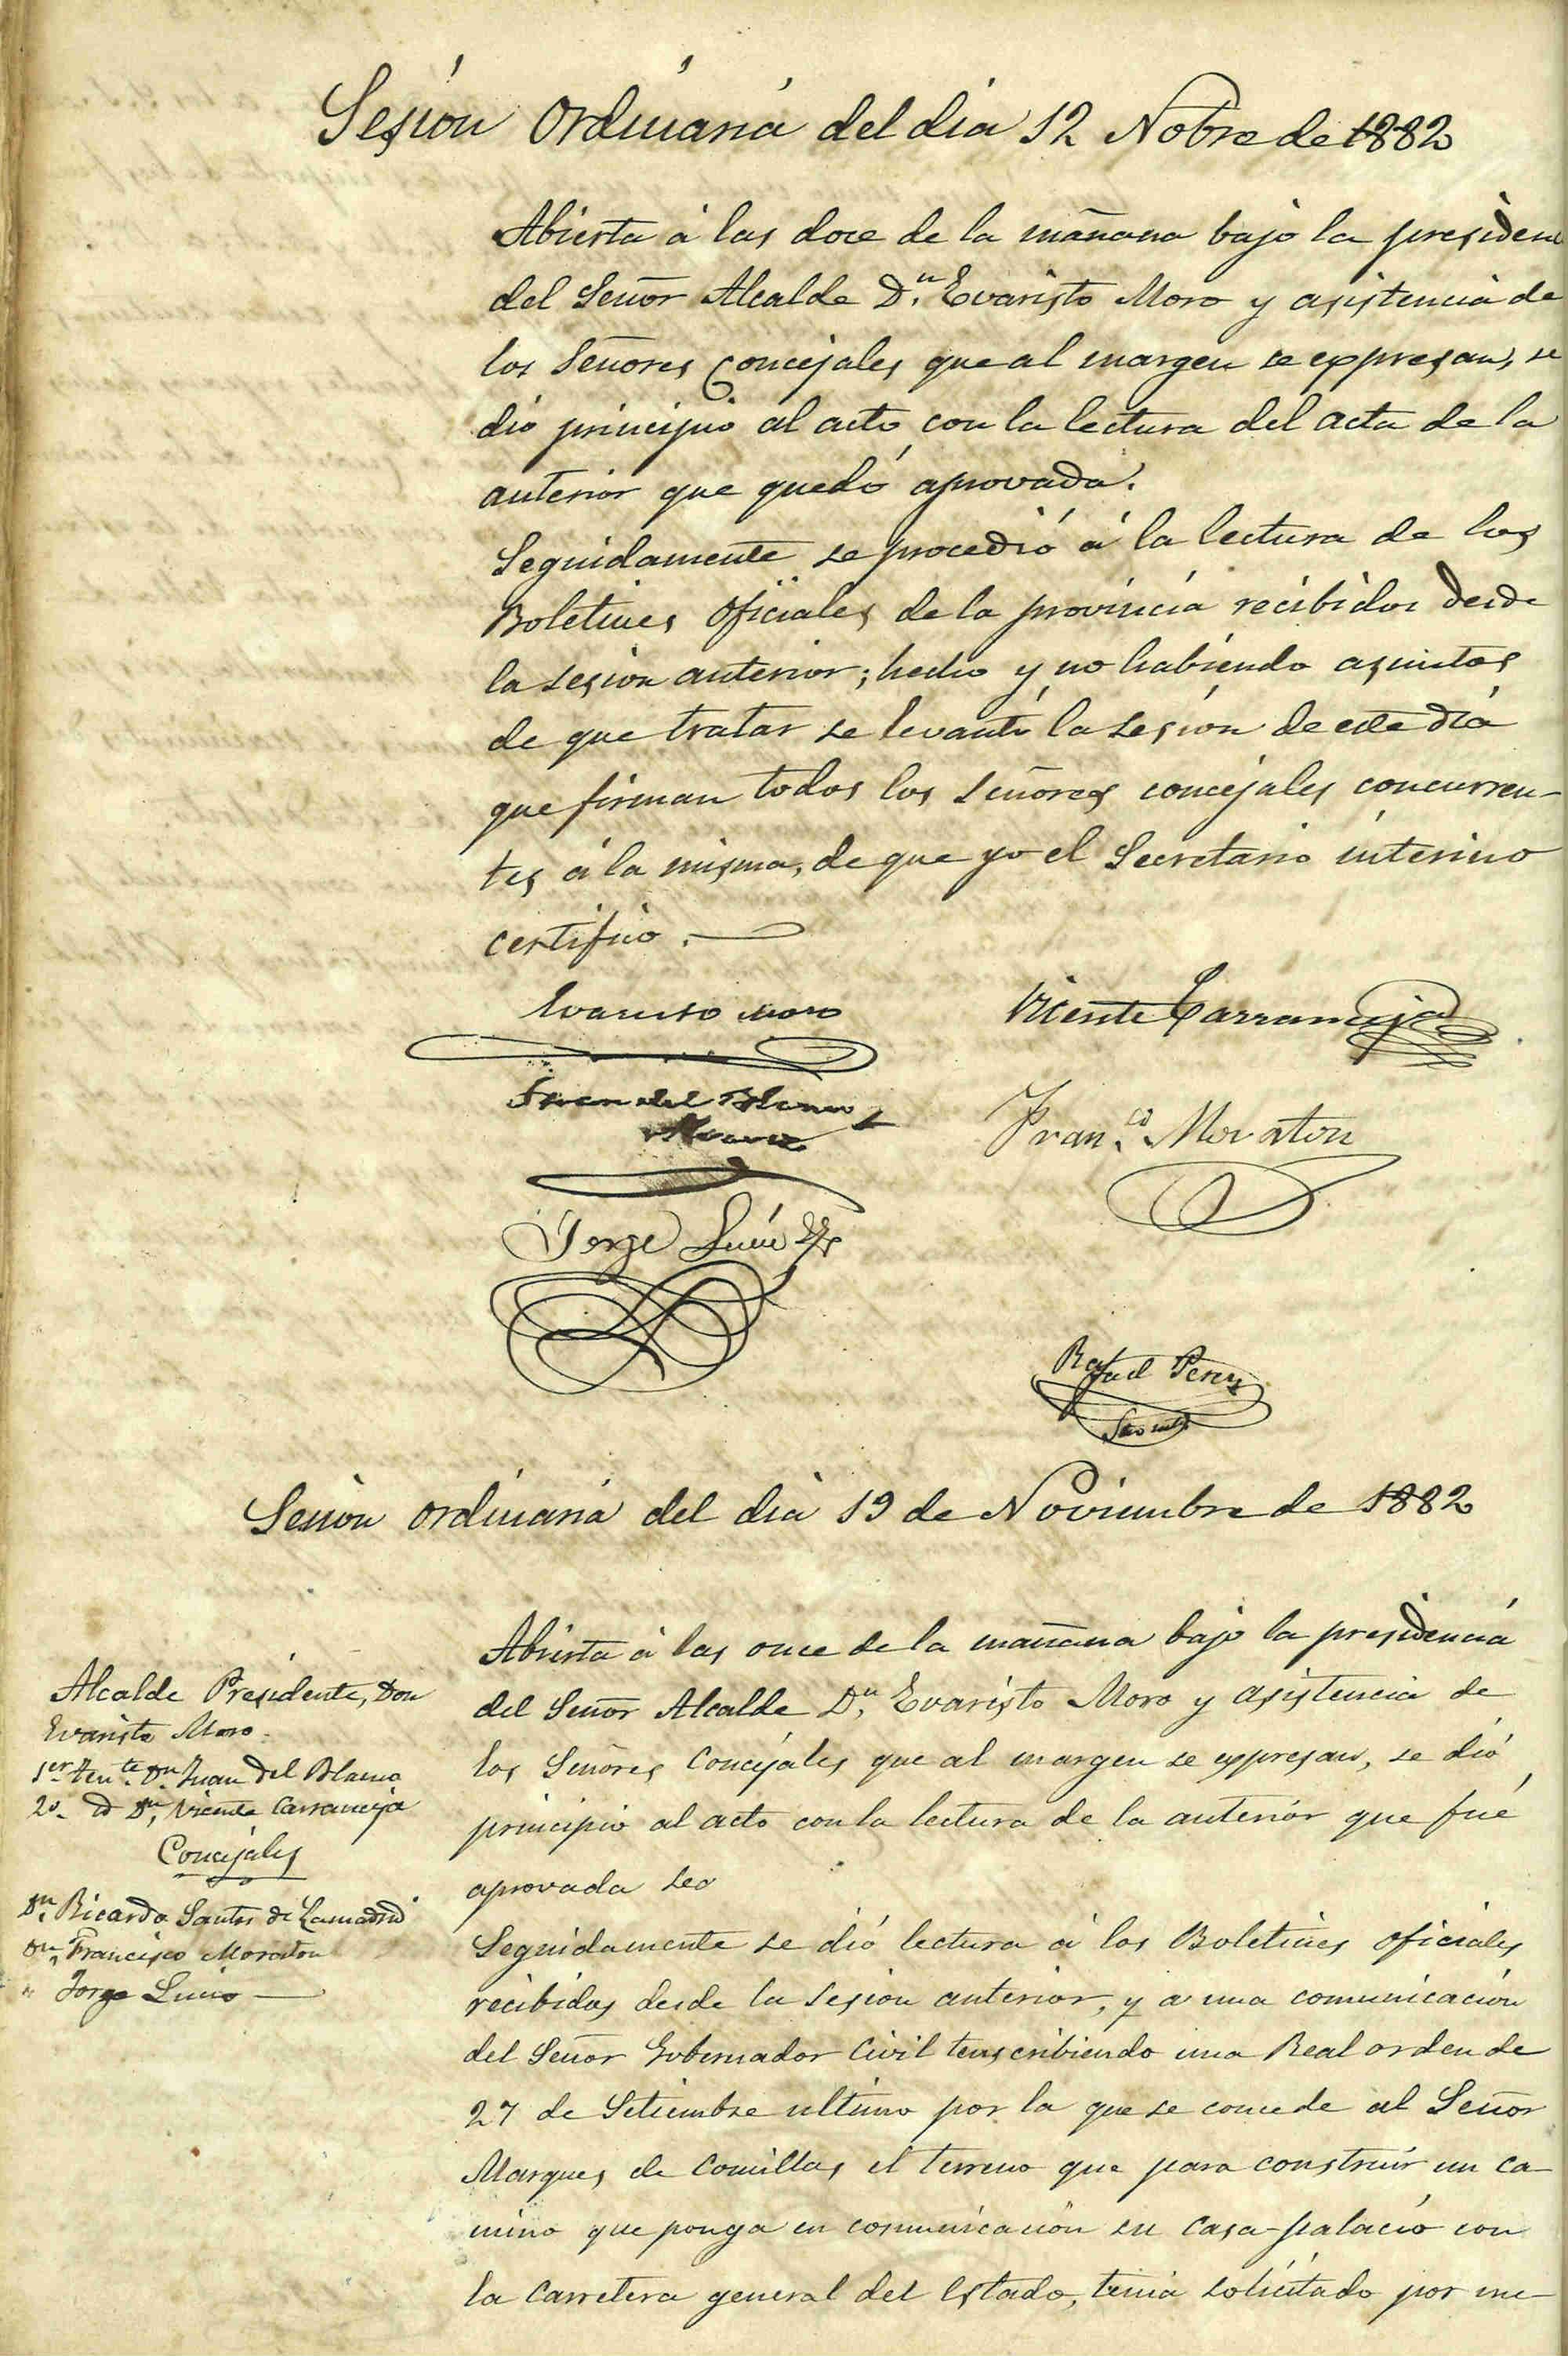 Sesión Ordinaria del dia 12 Nobre de 1882
Abierta á las doce de la mañana bajo la presidenc
del Señor Alcalde Dn. Evaristo Moro y asistencia de
los Señores Concejales que al margen se expresan, se
dió principio al acto con la lectura del acta de la
anterior que quedó aprovada.
Seguidamente se procedió á la lectura de los
Boletines Oficiales de la provincia recibidos desde
la sesion anterior; hecho y no habiendo asuntos
de que tratar se levantó la sesión de este día
que firman todos los señores concejales concurren-
tes á la misma, de que yo el Secretario interino
certifico.
Evaristo Moro
Vicente Carranceja
Juan del Blanco
Fran.co Moraton
Jorge Lucio
Rafael Perez
Sesion ordinaria del dia 19 de Noviembre de 1882
Alcalde Presidente, Don
Evaristo Moro
1er Tente. Dn Juan del Blanco
2o. id Dn, Vicente Carranceja
Concejales
Dn. Ricardo Santos de Lamadrid
Dn, Francisco Moraton
" Jorge Lucio
Abierta á las once de la mañana bajo la presidencia
del Señor Alcalde Dn, Evaristo Moro y asistencia de
los Señores Concejales que al margen se expresan, se dió
principio al acto con la lectura de la anterior que fué
aprovada
Seguidamente se dió lectura á los Boletines oficiales
recibidos desde la sesion anterior, y a una comunicación
del Señor Gobernador Civil tenscribiendo una Real orden de
27 de Setiembre ultimo por la que se concede al Señor
Marques de Comillas el terreno que para construir un ca-
mino que ponga en comunicación su casa-palacio con
la Carretera general del Estado, tenia solicitado por me-